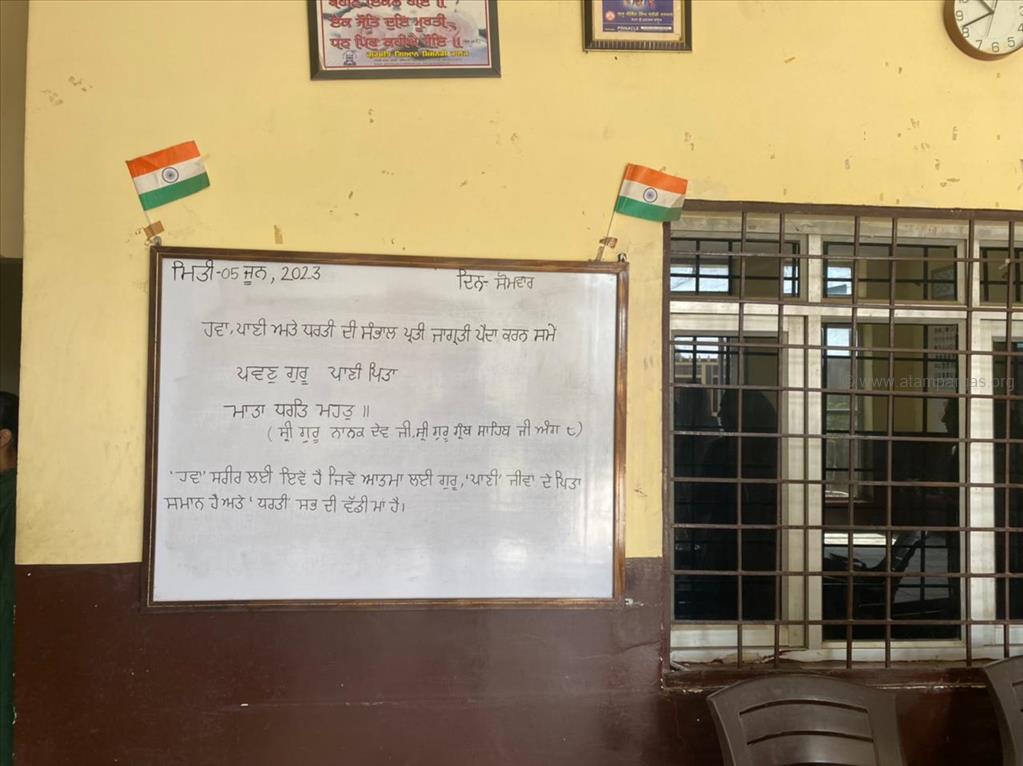 ਏਕ ਜੋਤਿ ਦੁਇ ਮੂਰਤੀ
ਧਨ ਪਿਰੁ ਕਹੀਐ ਸੋਇ ॥
ਮਿਤੀ-05 ਜੂਨ, 2023 ਦਿਨ- ਸੋਮਵਾਰ
ਹਵਾ, ਪਾਣੀ ਅਤੇ ਧਰਤੀ ਦੀ ਸੰਭਾਲ ਪ੍ਰਤੀ ਜਾਗ੍ਰਤੀ ਪੈਦਾ ਕਰਨ ਸਮੇਂ
ਪਵਣੁ ਗੁਰੂ ਪਾਣੀ ਪਿਤਾ
ਮਾਤਾ ਧਰਤਿ ਮਹਤੁ ॥
( ਸ੍ਰੀ ਗੁਰੂ ਨਾਨਕ ਦੇਵ ਜੀ, ਸ੍ਰੀ ਗੁਰੂ ਗ੍ਰੰਥ ਸਾਹਿਬ ਜੀ ਅੰਗ ੮)
'ਹਵਾ' ਸਰੀਰ ਲਈ ਇਵੇਂ ਹੈ ਜਿਵੇਂ ਆਤਮਾ ਲਈ ਗੁਰੂ, 'ਪਾਣੀ' ਜੀਵਾਂ ਦੇ ਪਿਤਾ
ਸਮਾਨ ਹੈ ਅਤੇ 'ਧਰਤੀ' ਸਭ ਦੀ ਵੱਡੀ ਮਾਂ ਹੈ।
www.atampargas.org